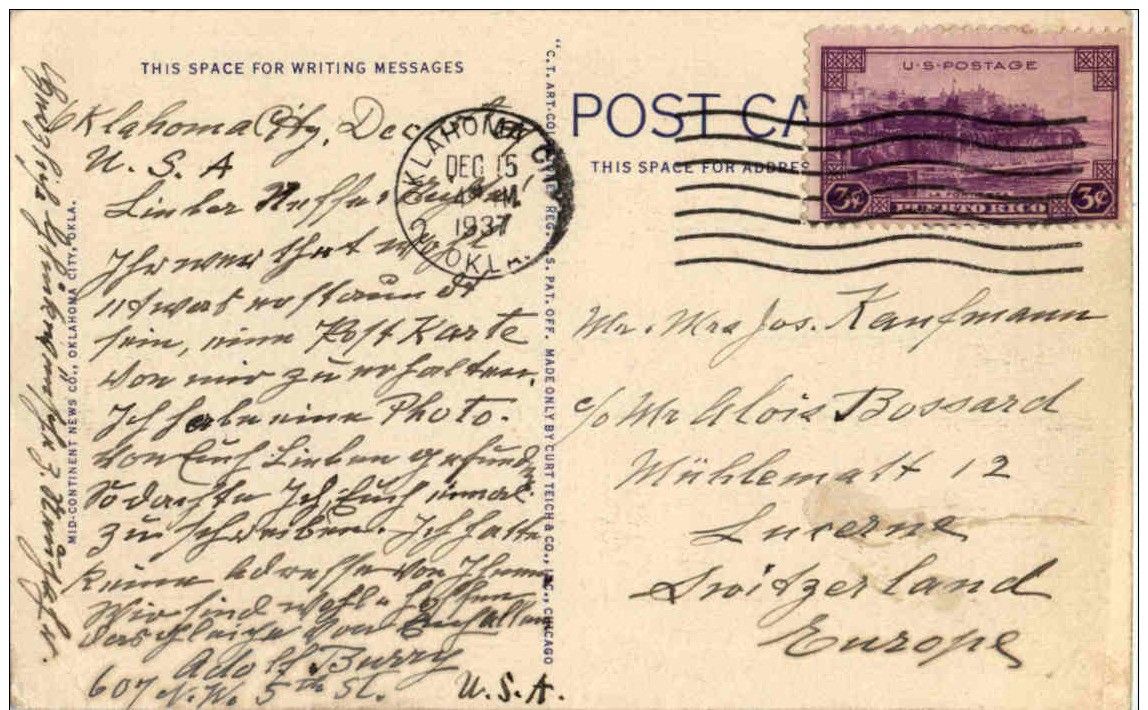 THIS SPACE FOR WRITING MESSAGES
Oklahoma City, Dec
U. S. A
Lieber Neffe
Ihr werdet wohl
etwas erstaunt
sein, eine Post Karte
von mir zu erhalten.
Ich habe eine Photo.
von Euch Lieben gefunden
So dachte Ich, Euch einmal
zu schreiben. Ich hatte
keine Adresse von Ihnen
Wir sind wohl & hoffen
das gleiche von Euch allen
Adolf Burry
607 N.W. 5th St. U.S.A.
MID-CONTINENT NEWS CO., OKLAHOMA CITY, OKLA.
"C. T. ART-COL REG. U. S. PAT. OFF. MADE ONLY BY CURT TEICH & CO., INC., CHICAGO
OKLAHOMA CITY
DEC 15
M
1937
OKLA.
POST CA
THIS SPACE FOR ADDRES
U·S·POSTAGE
3¢ PUERTO RICO 3¢
Mr. Mrs Jos. Kaufmann
c/o Mr Alois Bossard
Mühlematt 12
Lucerne
Switzerland
Europe